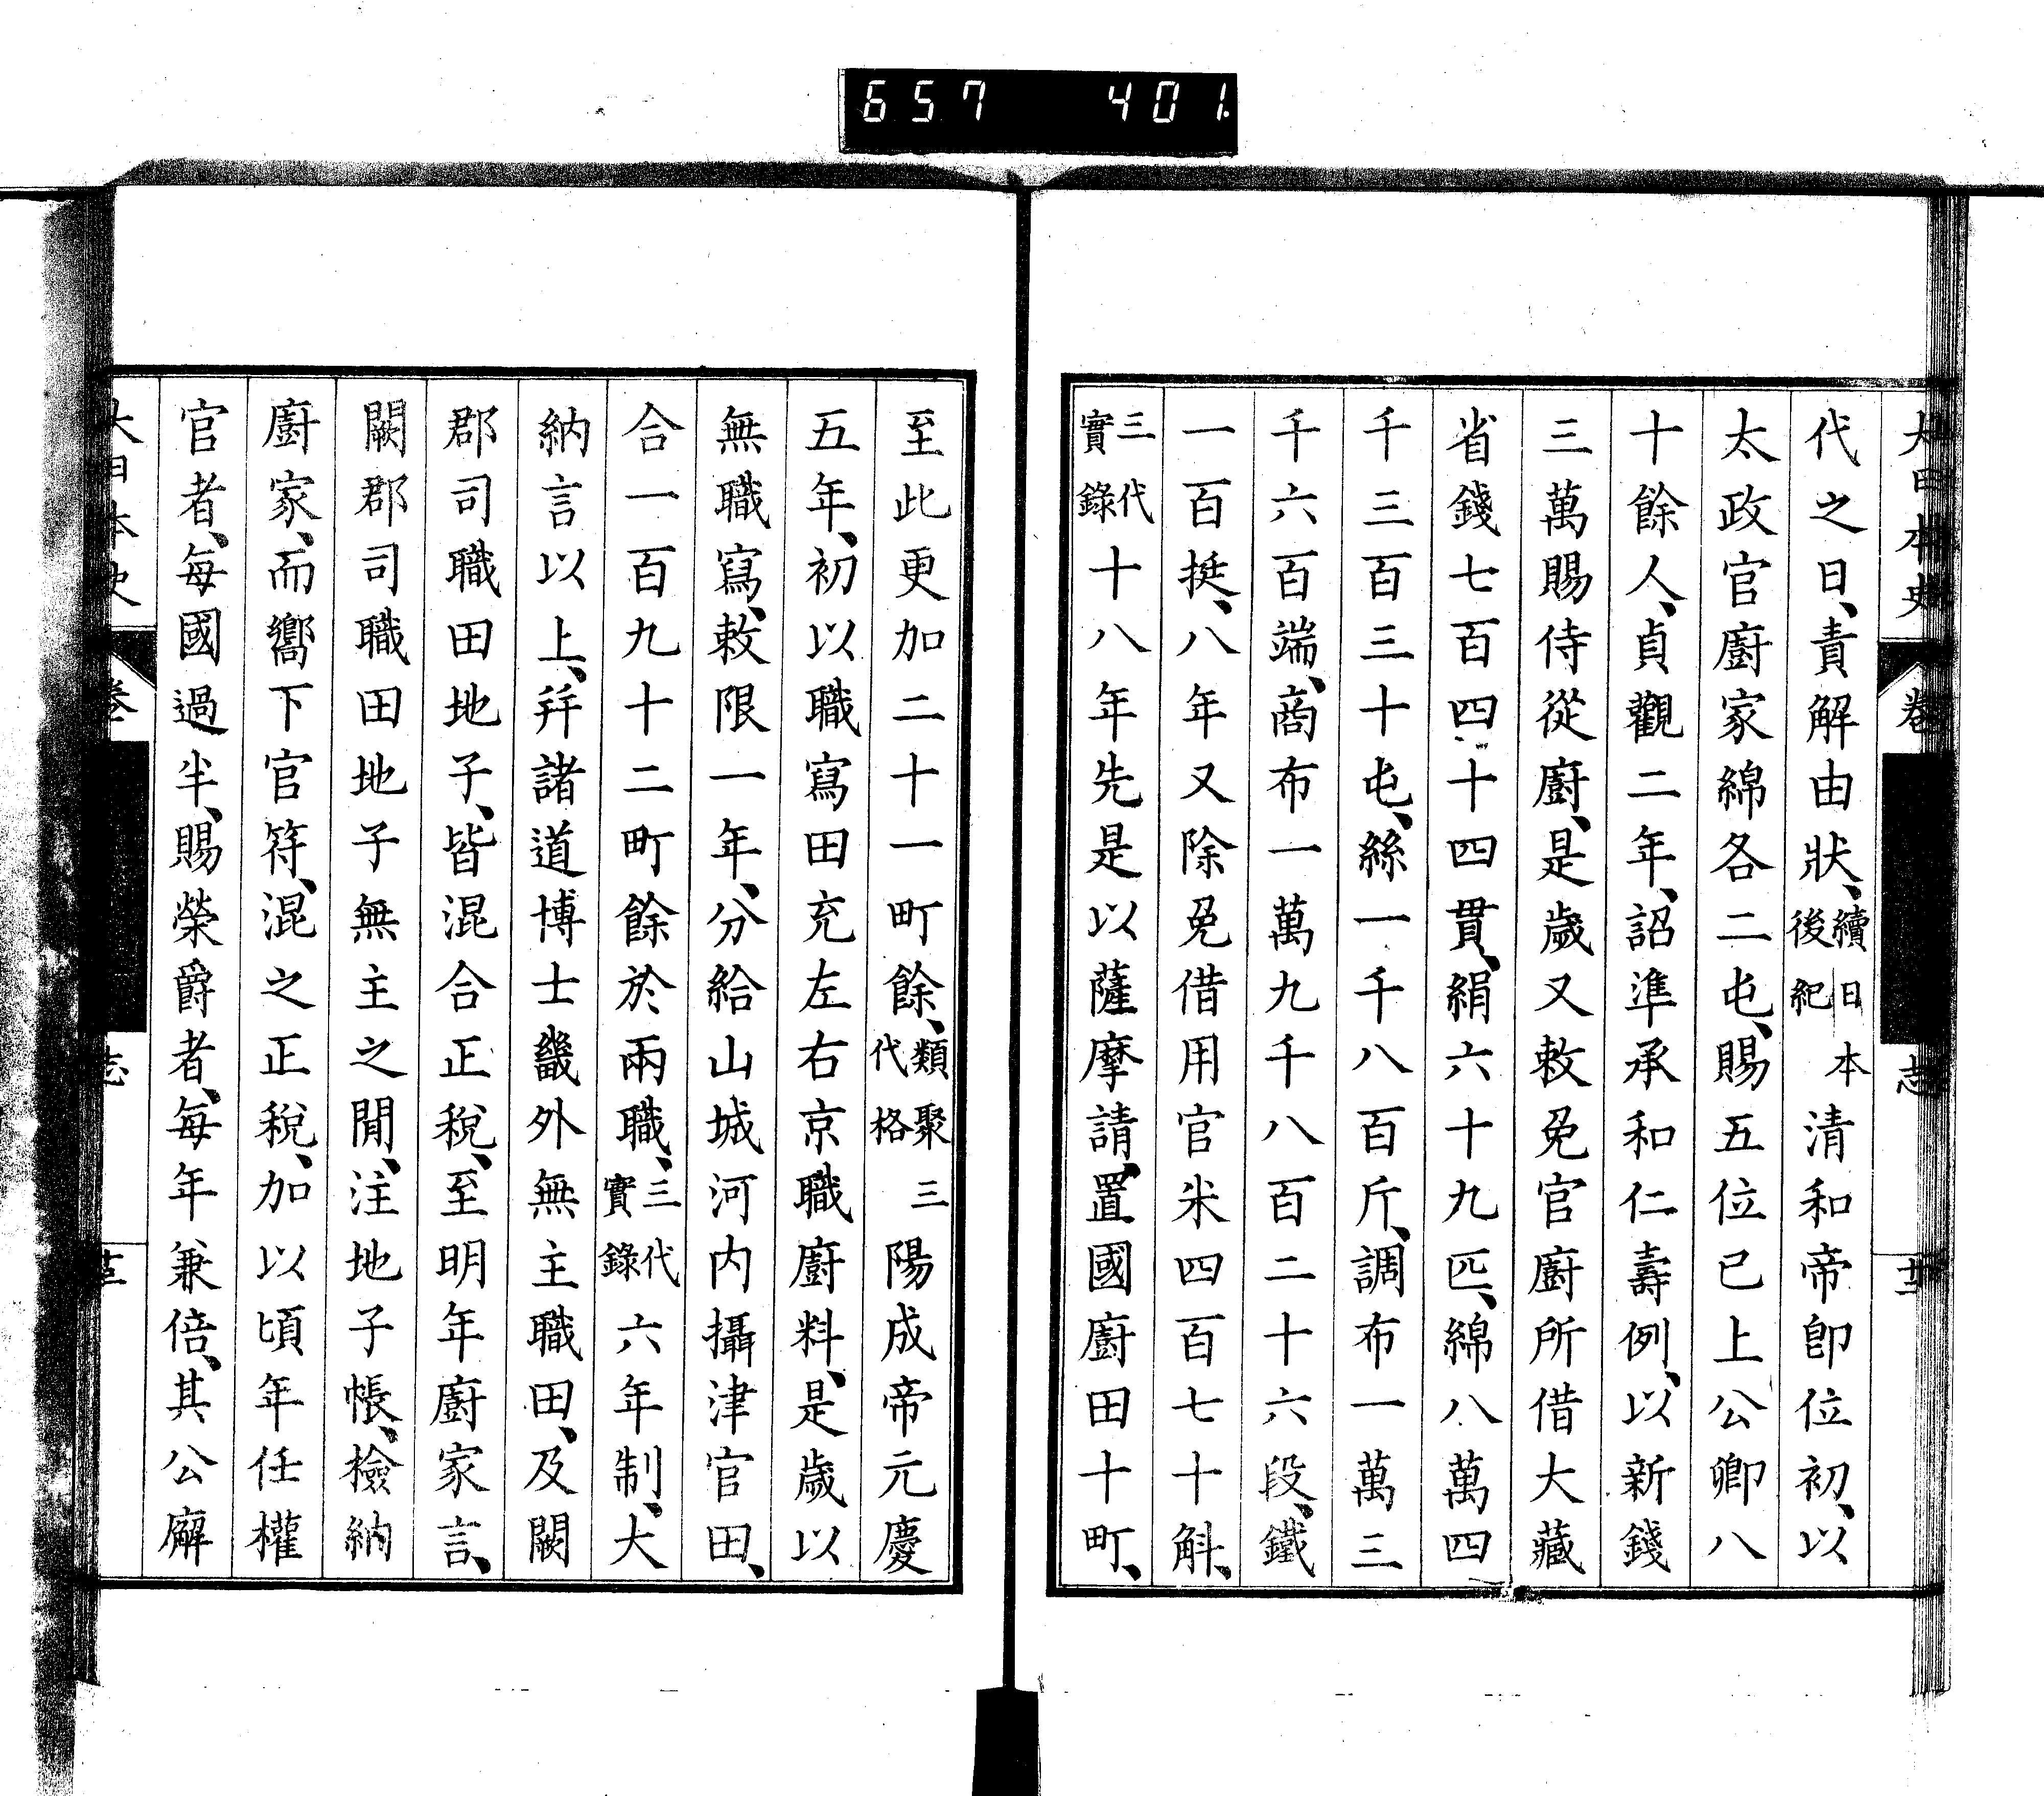 657 401
大日本史 卷 志
代之日、責解由狀、續日本後紀清和帝卽位初、以
太政官廚家綿各二屯、賜五位已上公卿八
十餘人、貞觀二年、詔準承和仁壽例、以新錢
三萬賜侍從廚、是歲又敕免官廚所借大藏
省錢七百四十四貫、絹六十九匹、綿八萬四
千三百三十屯、絲一千八百斤、調布一萬三
千六百端、商布一萬九千八百二十六段、鐵
一百挺、八年又除免借用官米四百七十斛、
三代實錄十八年先是以薩摩請、置國廚田十町、
至此更加二十一町餘、類聚三代格陽成帝元慶
五年、初以職寫田充左右京職廚料、是歲以
無職寫、敕限一年、分給山城河內攝津官田、
合一百九十二町餘於兩職、三代實錄六年制、大
納言以上、幷諸道博士畿外無主職田、及闕
郡司職田地子、皆混合正稅、至明年廚家言、
闕郡司職田地子無主之閒、注地子帳、檢納
廚家、而嚮下官符、混之正稅、加以頃年任權
官者、每國過半、賜榮爵者、每年兼倍、其公廨
大日本史 卷 志